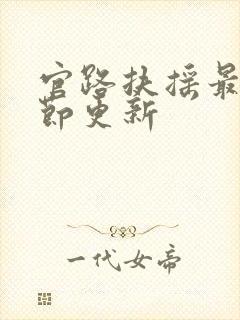 官路扶摇最
节更新
一代女帝